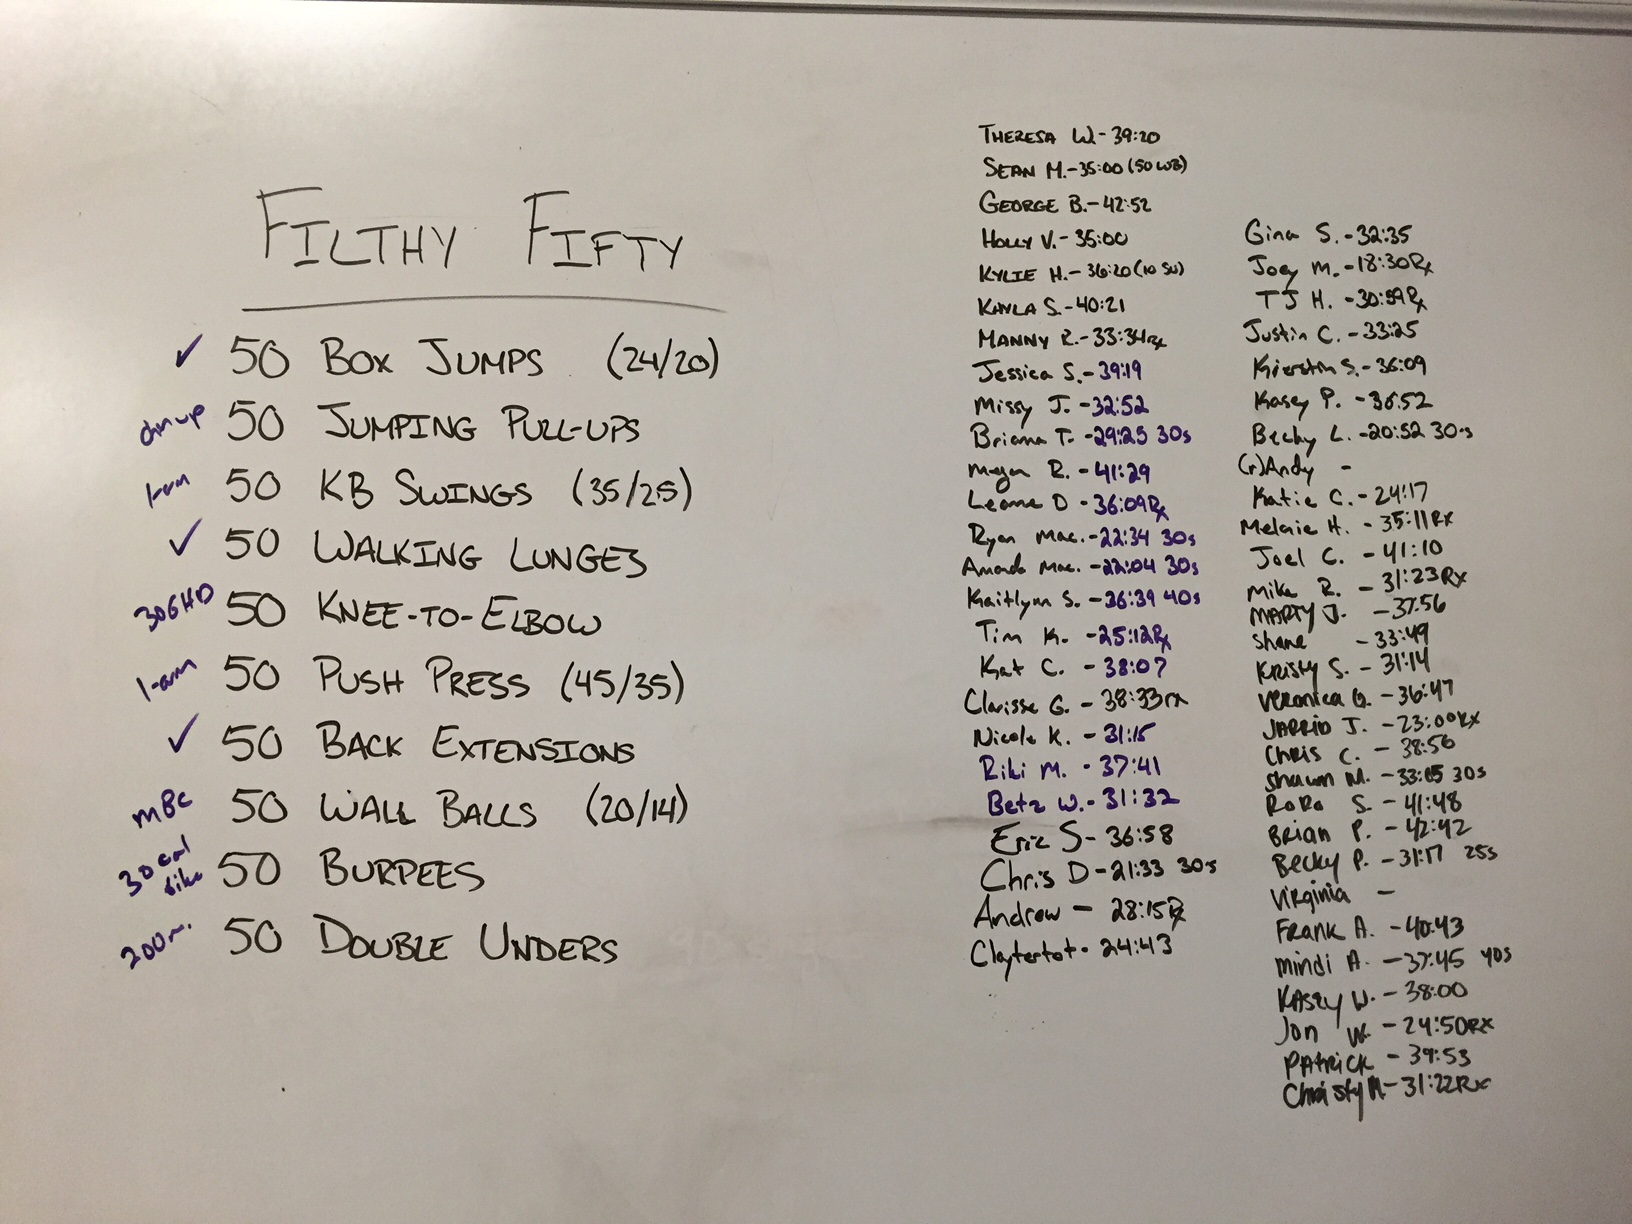 FILTHY FIFTY
✓ 50 BOX JUMPS (24/20)
chinup 50 JUMPING PULL-UPS
1-arm 50 KB SWINGS (35/25)
✓ 50 WALKING LUNGES
30GHD 50 KNEE-TO-ELBOW
1-arm 50 PUSH PRESS (45/35)
✓ 50 BACK EXTENSIONS
MBC 50 WALL BALLS (20/14)
30 cal bike 50 BURPEES
200m. 50 DOUBLE UNDERS
THERESA W.- 39:20
SEAN M.-35:00 (50 WB)
GEORGE B.- 42:52
HOLLY V.- 35:00
KYLIE H.- 36:20 (10 SU)
KAYLA S.- 40:21
MANNY R.- 33:34Rx
Jessica S.- 39:19
Missy J. -32:52
Briana T. -29:25 30s
Megan R. - 41:29
Leanne D - 36:09Rx
Ryan Mac.-22:34 30s
Amanda Mac. -22:04 30s
Kaitlynn S. -36:39 40s
Tim K. -25:12Rx
Kat C. - 38:07
Clarisse G. - 38:33rx
Nicole K. - 31:15
Riki M. - 37:41
Betz W.- 31:32
Eric S- 36:58
Chris D-21:33 30s
Andrew - 28:15Rx
Claytertot- 24:43
Gina S. -32:35
Joey M. -18:30Rx
TJ H. -30:59Rx
Justin C. -33:25
Kierstin S.- 36:09
Kasey P. -36:52
Becky L. -20:52 30's
(r)Andy -
Katie C. - 24:17
Melanie H. - 35:11Rx
Joel C. - 41:10
Mike R. - 31:23Rx
MARTY J. -37:56
Shane -33:49
Kristy S. - 31:14
Veronica G. - 36:47
JARRID J. -23:00Rx
Chris C. - 38:56
Shawn M. -33:05 30s
RoRo S. - 41:48
Brian P. - 42:42
Becky P. -31:17 25s
Virginia -
FRANK A. -40:43
Mindi A. -37:45 40s
KASEY W. - 38:00
Jon W. - 24:50Rx
PATRICK - 39:53
Christy M- 31:22Rx